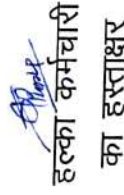 हल्का कर्मचारी
का हस्ताक्षर